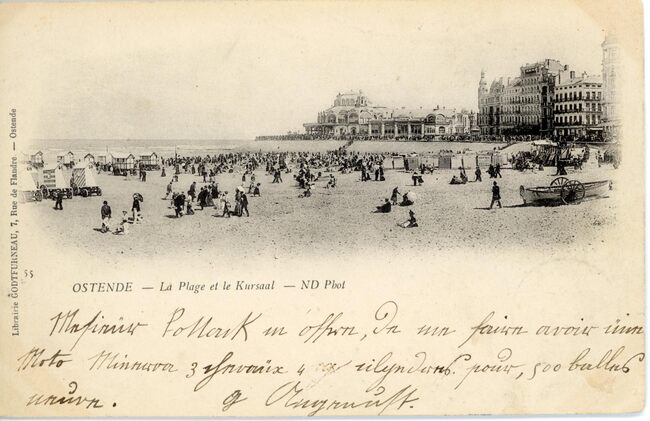 Librairie GODTFURNEAU, 7, Rue de Flandre. — Ostende
55
OSTENDE — La Plage et le Kursaal — ND Phot
Messieür Pollack m offre, De me faire avoir üne
Moto Minerva 3 chevaüx 4 cilyndres pour, 500 balles
neuve.